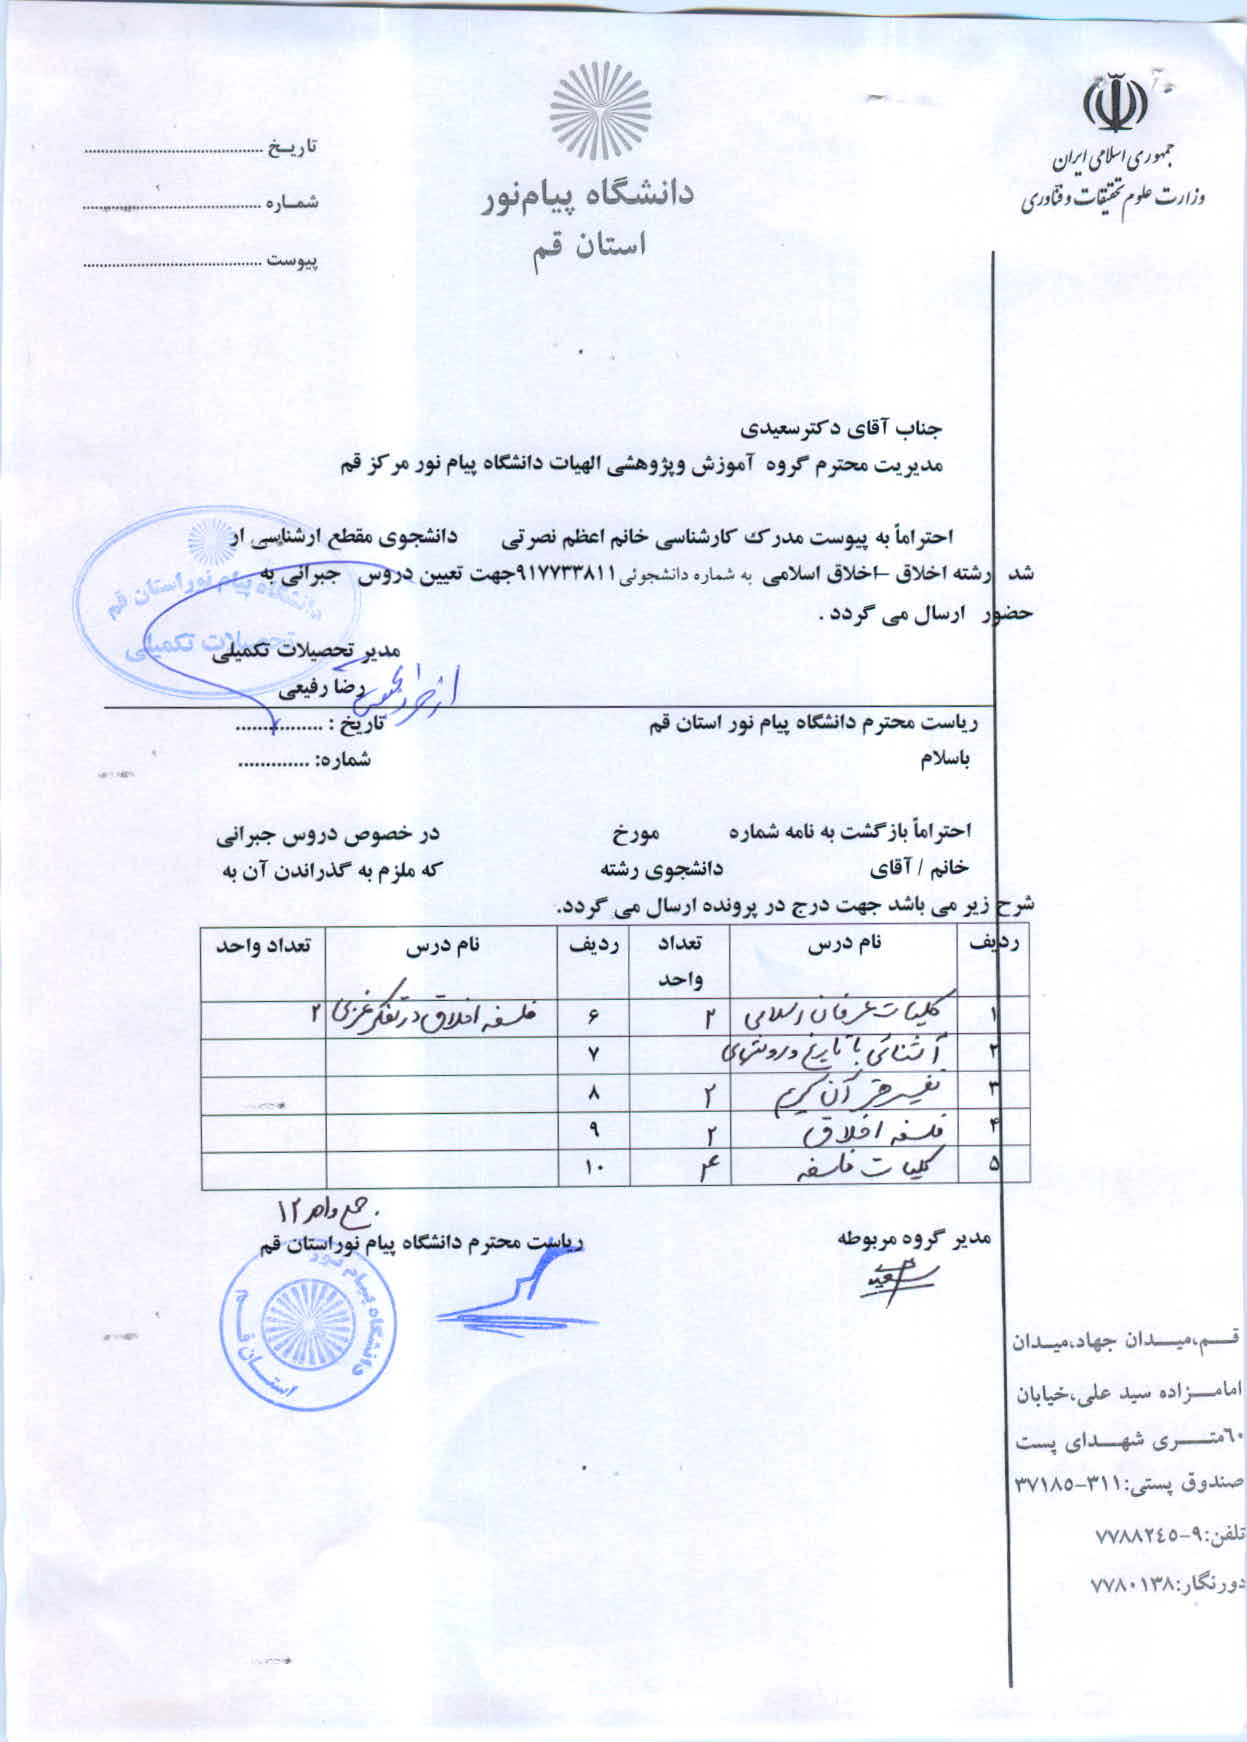 جمهوری اسلامی ایران
وزارت علوم تحقیقات و فناوری
دانشگاه پیام‌نور
استان قم
تاریخ ........................................
شماره ........................................
پیوست ........................................
جناب آقای دکترسعیدی
مدیریت محترم گروه آموزش وپژوهشی الهیات دانشگاه پیام نور مرکز قم
احتراماً به پیوست مدرک کارشناسی خانم اعظم نصرتی دانشجوی مقطع ارشناسی ار
شد رشته اخلاق –اخلاق اسلامی به شماره دانشجوئی ۹۱۷۷۳۳۸۱۱جهت تعیین دروس جبرانی به
حضور ارسال می گردد .
دانشگاه پیام نوراستان قم
تحصیلات تکمیلی
مدیر تحصیلات تکمیلی
رضا رفیعی
ریاست محترم دانشگاه پیام نور استان قم تاریخ : ................
باسلام شماره: .............
احتراماً بازگشت به نامه شماره مورخ در خصوص دروس جبرانی
خانم / آقای دانشجوی رشته که ملزم به گذراندن آن به
شرح زیر می باشد جهت درج در پرونده ارسال می گردد.
ردیف نام درس تعداد واحد ردیف نام درس تعداد واحد
۱ کلیات عرفان اسلامی ۲ ۶ فلسفه اخلاق در تفکر غرب ۲
۲ آشنائی با تاریخ و روشهای ۷
۳ تفسیر قرآن کریم ۲ ۸
۴ فلسفه اخلاق ۲ ۹
۵ کلیات فلسفه ۴ ۱۰
جمع واحد ۱۲
مدیر گروه مربوطه ریاست محترم دانشگاه پیام نوراستان قم
دانشگاه پیام نور
استان قم
قم،میدان جهاد،میدان
امامزاده سید علی،خیابان
٦٠متری شهدای پست
صندوق پستی:۳۱۱-۳۷۱۸۵
تلفن:۹-۷۷۸۸۲٤٥
دورنگار:۷۷۸۰۱۳۸